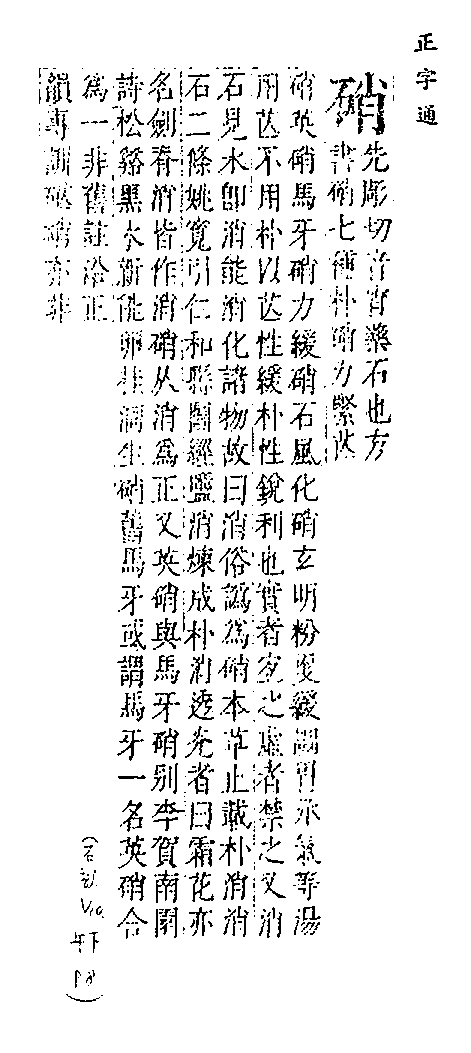 正字通
硝
先彫切音宵藥石也方
書硝七種朴硝力緊芒
硝英硝馬牙硝力緩硝石風化硝玄明粉更緩調胃承氣等湯
用芒不用朴以芒性緩朴性銳利也實者宜之虛者禁之又消
石見水卽消能消化諸物故曰消俗譌爲硝本草止載朴消消
石二條姚寬引仁和縣圖經鹽消煉成朴消透亮者曰霜花亦
名劍脊消皆作消硝从消爲正又英硝與馬牙硝别李賀南園
詩松谿黑水新龍卵桂洞生硝舊馬牙或謂馬牙一名英硝合
爲一非舊註泠正
韻專訓硭硝亦非